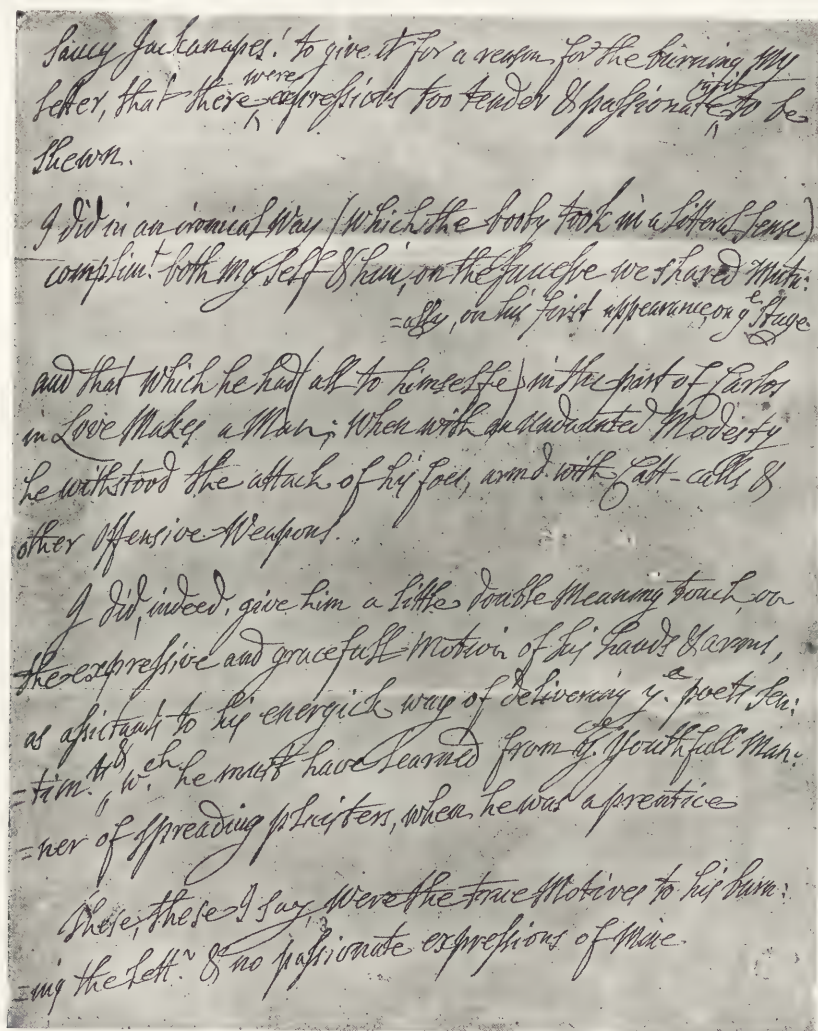 Saucy Jackanapes! to give it for a reason for the burning My
Letter, that there were expressions too tender & passionate to be
shewn.
I did in an ironical Way (which the booby took in a litteral sense)
complimt. both My self & him, on the successe we shared Mutu:
=ally, on his first appearance on ye Stage
and that which he had (all to himselfe) in the part of Carlos
in Love Makes a Man; When with an undaunted Modesty
he withstood the attack of his foes, armd. with Catt-calls &
other offensive Weapons..
I did, indeed, give him a little double Meaning touch on
the expressive and gracefull Motion of his hands & arms,
as assistants to his energick way of delivering ye. poets sen:
=timts. & wch. he must have learned from ye. Youthfull Man:
=ner of spreading plaisters, when he was aprentice
These, these I say, Were the true Motives to his burn:
=ing the Lettr. & no passionate expressions of Mine